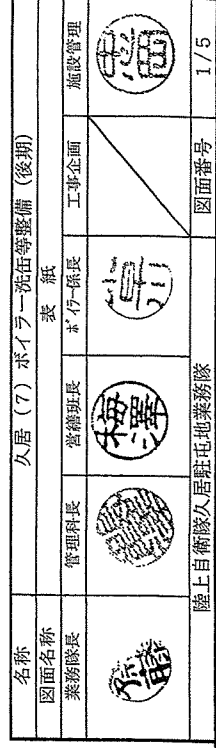 名称 久居(7)ボイラー洗缶等整備(後期)
図面名称 表紙
業務隊長 管理科長 営繕班長 ボイラー係長 工事企画 施設管理
齋藤 梅澤
陸上自衛隊久居駐屯地業務隊 図面番号 1/5